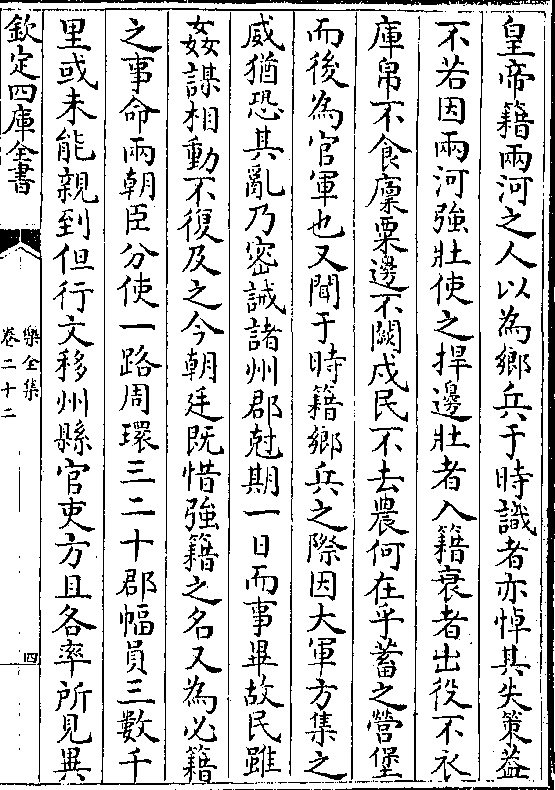 皇帝籍兩河之人以為鄉兵于時識者亦悼其失策益
不若因兩河強壯使之捍邊壯者入籍衰者出役不衣
庫帛不食廩粟邊不闕戍民不去農何在乎蓄之營堡
而後為官軍也又聞于時籍鄉兵之際因大軍方集之
威猶恐其亂乃密誡諸州郡尅期一日而事畢故民雖
姦謀相動不復及之今朝廷既惜強籍之名又為必籍
之事命兩朝臣分使一路周環三二十郡幅員三數千
里或未能親到但行文移州縣官吏方且各率所見異
欽定四庫全書
樂全集
卷二十二
四